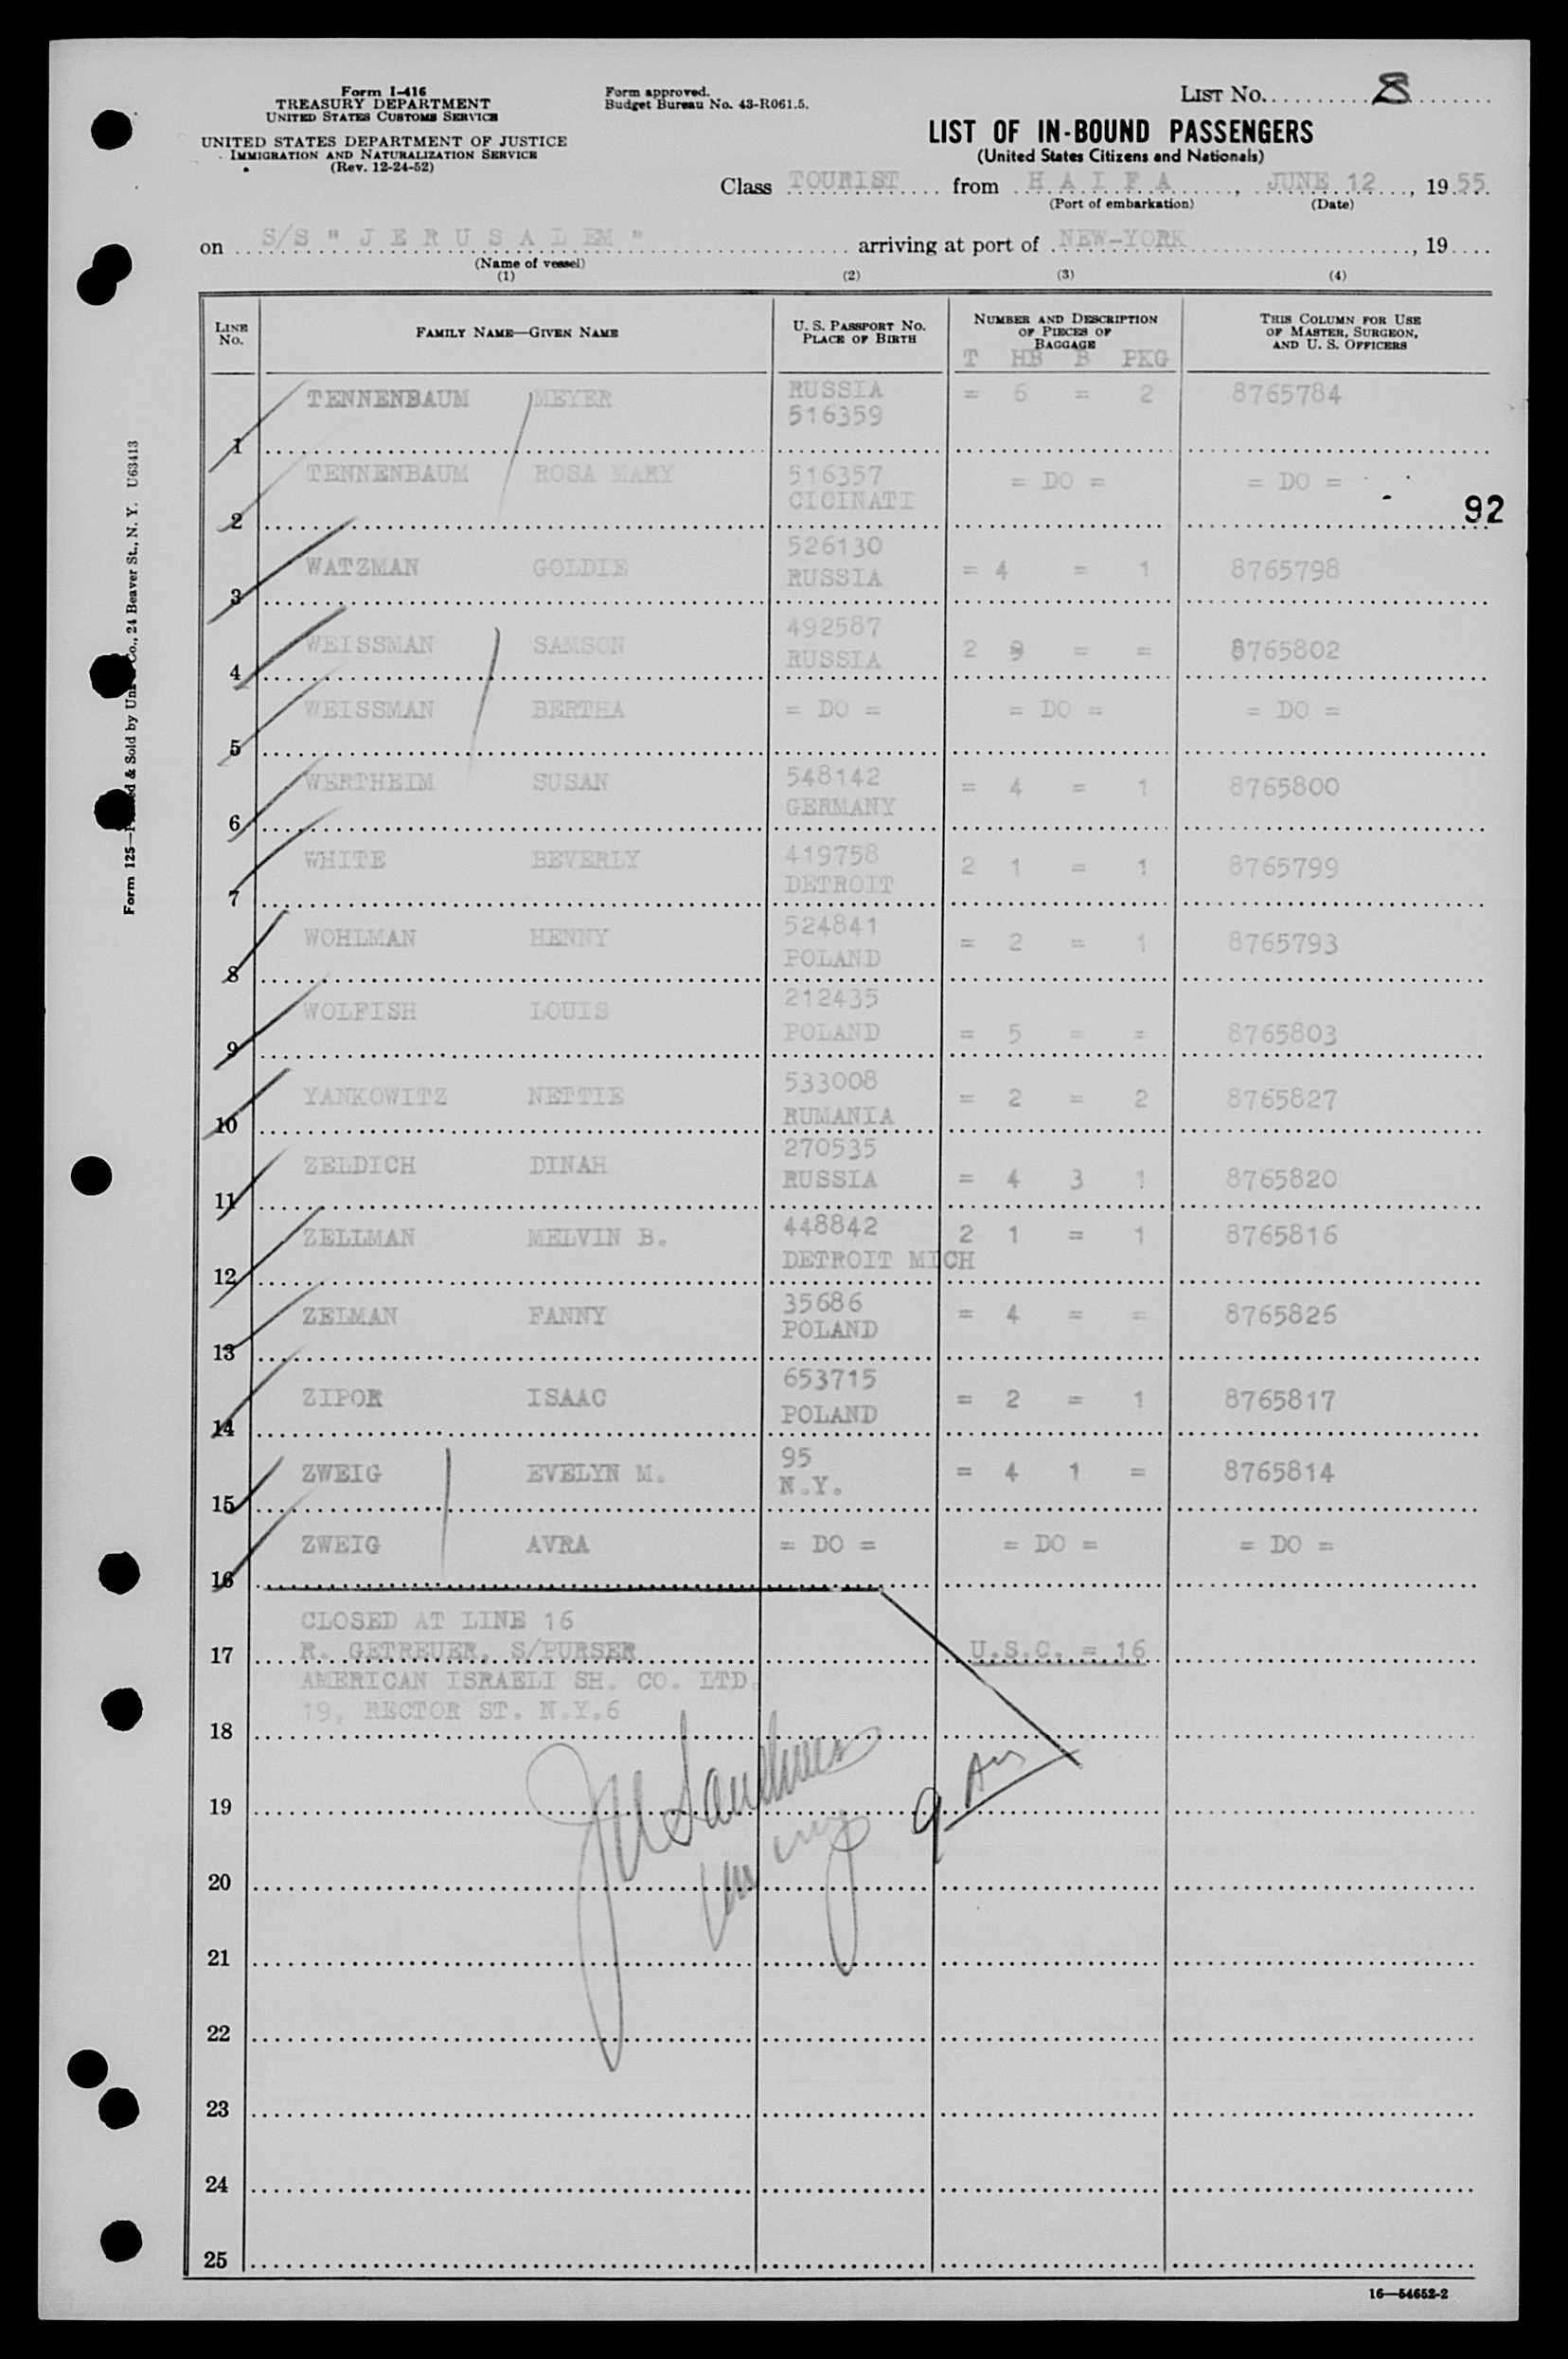 Form I-416
TREASURY DEPARTMENT
UNITED STATES CUSTOMS SERVICE
UNITED STATES DEPARTMENT OF JUSTICE
IMMIGRATION AND NATURALIZATION SERVICE
(Rev. 12-24-52)
Form approved.
Budget Bureau No. 43-R061.5.
LIST No. 8
LIST OF IN-BOUND PASSENGERS
(United States Citizens and Nationals)
Class TOURIST from H A I F A, JUNE 12, 19 55
(Port of embarkation) (Date)
on S/S " J E R U S A L EM " arriving at port of NEW-YORK, 19
(Name of vessel)
(1) (2) (3) (4)
LINE No. FAMILY NAME—GIVEN NAME U. S. PASSPORT No. PLACE OF BIRTH NUMBER AND DESCRIPTION OF PIECES OF BAGGAGE THIS COLUMN FOR USE OF MASTER, SURGEON, AND U. S. OFFICERS
T HB B PKG
1 TENNENBAUM MEYER RUSSIA 516359 = 6 = 2 8765784
2 TENNENBAUM ROSA MARY 516357 CICINATI = DO = = DO =
92
3 WATZMAN GOLDIE 526130 RUSSIA = 4 = 1 8765798
4 WEISSMAN SAMSON 492587 RUSSIA 2 9 = = 8765802
5 WEISSMAN BERTHA = DO = = DO = = DO =
6 WERTHEIM SUSAN 548142 GERMANY = 4 = 1 8765800
7 WHITE BEVERLY 419758 DETROIT 2 1 = 1 8765799
8 WOHLMAN HENNY 524841 POLAND = 2 = 1 8765793
9 WOLFISH LOUIS 212435 POLAND = 5 = = 8765803
10 YANKOWITZ NETTIE 533008 RUMANIA = 2 = 2 8765827
11 ZELDICH DINAH 270535 RUSSIA = 4 3 1 8765820
12 ZELLMAN MELVIN B. 448842 DETROIT MICH 2 1 = 1 8765816
13 ZELMAN FANNY 35686 POLAND = 4 = = 8765826
14 ZIPOR ISAAC 653715 POLAND = 2 = 1 8765817
15 ZWEIG EVELYN M. 95 N.Y. = 4 1 = 8765814
16 ZWEIG AVRA = DO = = DO = = DO =
CLOSED AT LINE 16
17 R. GETREUER, S/PURSER U.S.C. = 16
AMERICAN ISRAELI SH. CO. LTD.
19, RECTOR ST. N.Y.6
18
19
20
21
22
23
24
25
16—54652-2
Form 125—Printed & Sold by Unz & Co., 24 Beaver St., N. Y. U63413